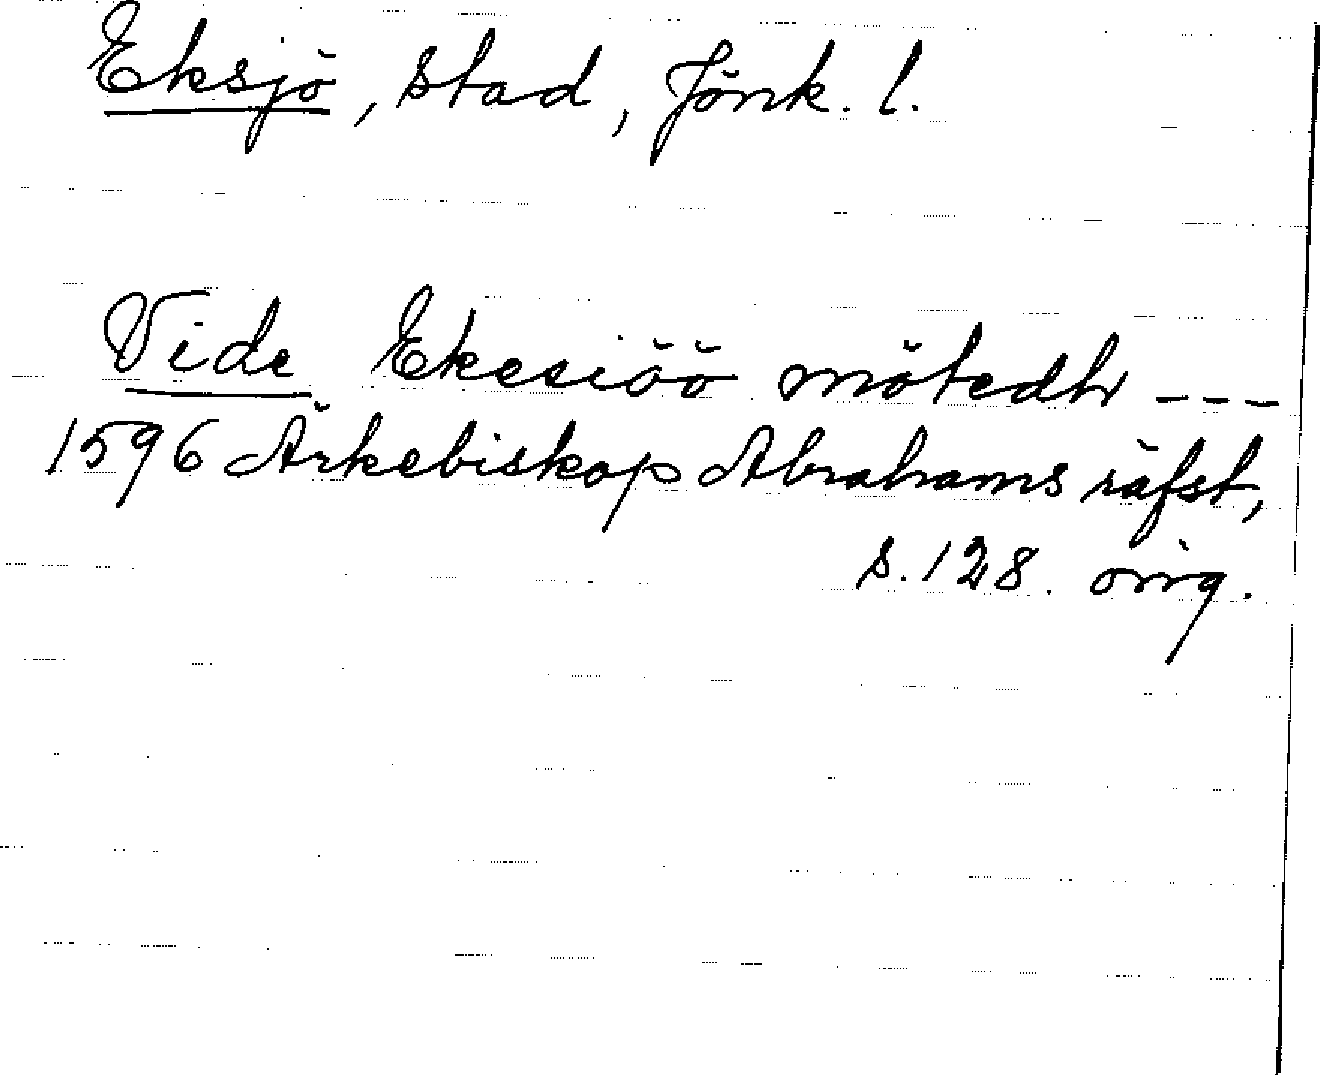 Eksjö, stad, Jönk. l.
Vide Ekesiöö mötedh ---
1596 Ärkebiskop Abrahams räfst,
s. 128. orig.